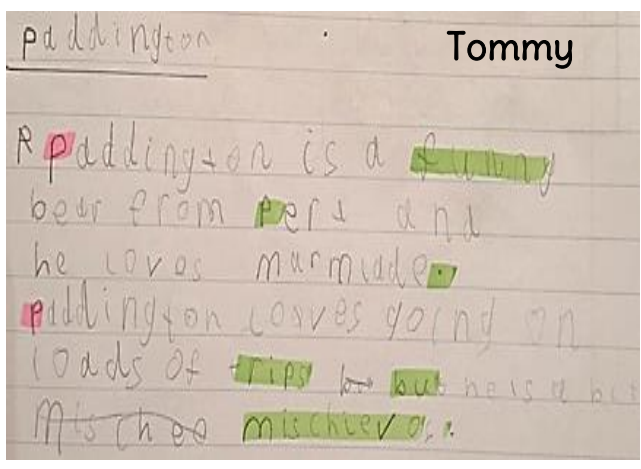 paddington
Tommy
R Paddington is a funny
bear from Pert and
he loves marmlade.
Paddington loaves going on
loads of trips but he is a bit
mischievos.